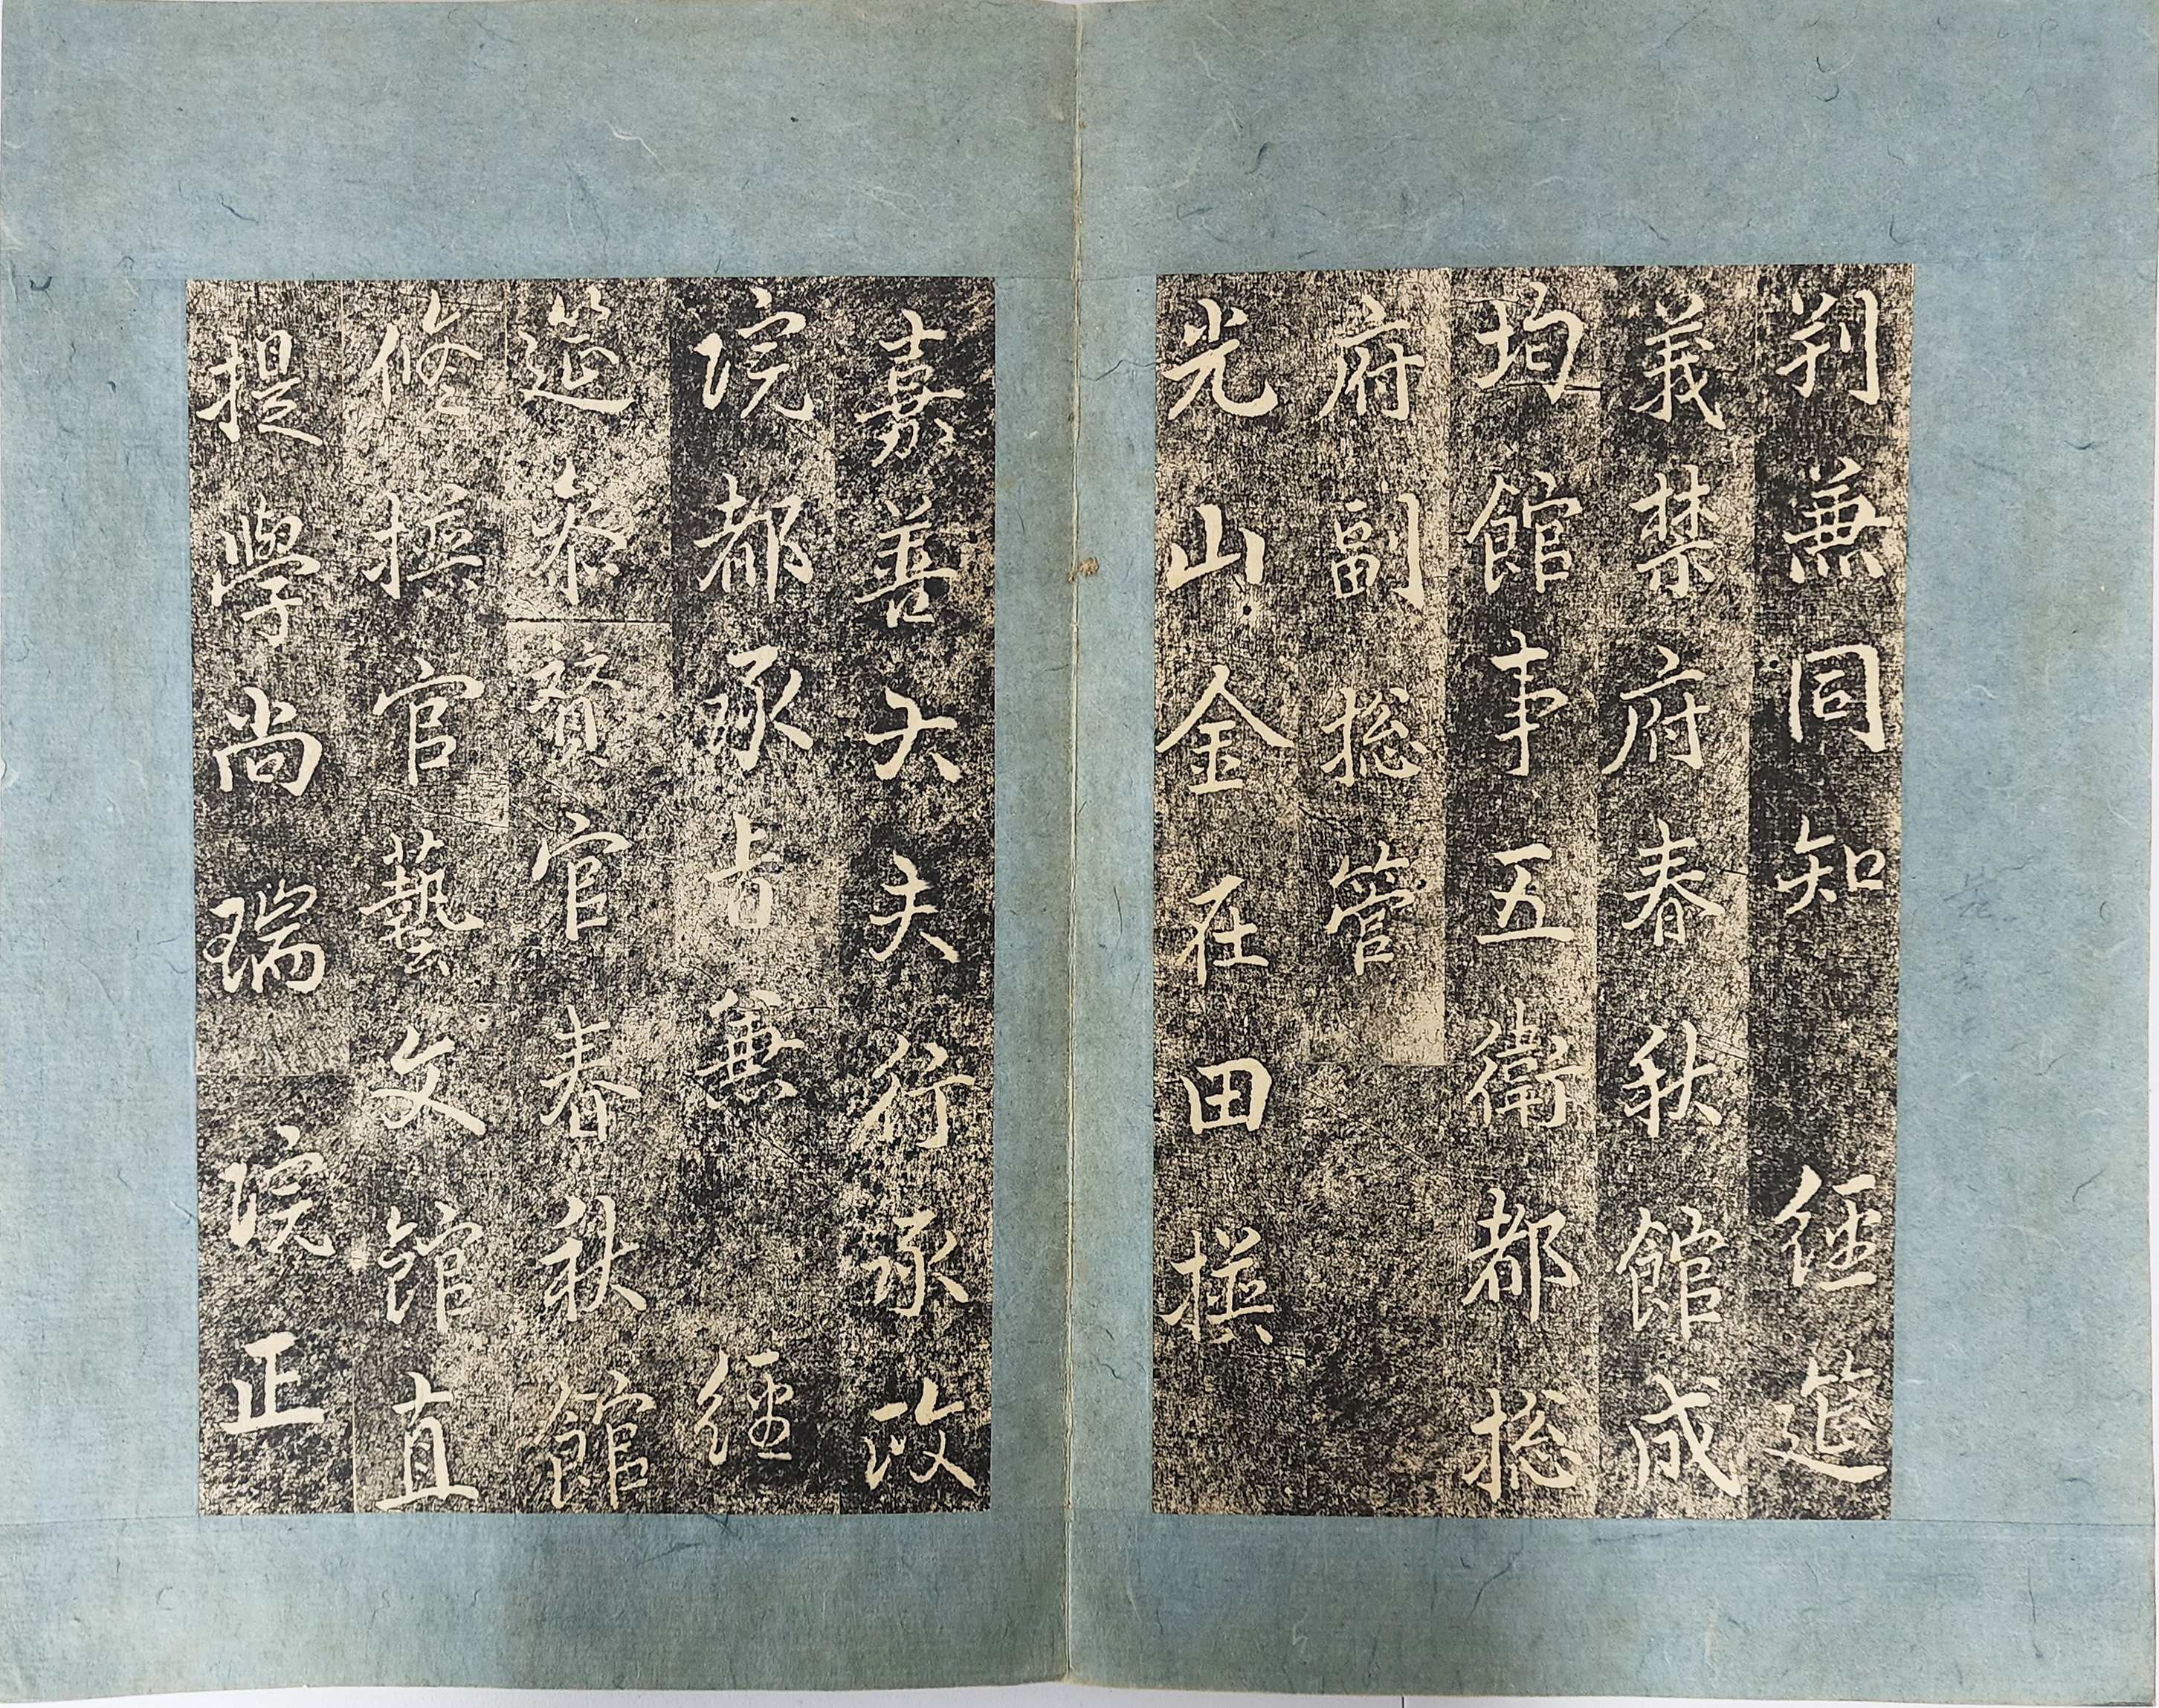 判兼同知 經筵
義禁府春秋館成
均館事五衛都摠
府副摠管
光山金在田撰
嘉善大夫行承政
院都承旨兼 經
筵參贊官春秋館
修撰官藝文館直
提學尚瑞院正